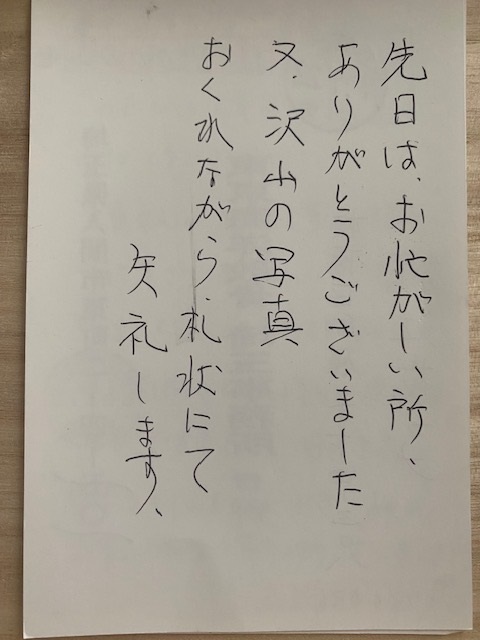 先日は、お忙がしい所、
ありがとうございました
又、沢山の写真
おくれながら、札状にて
失礼します、